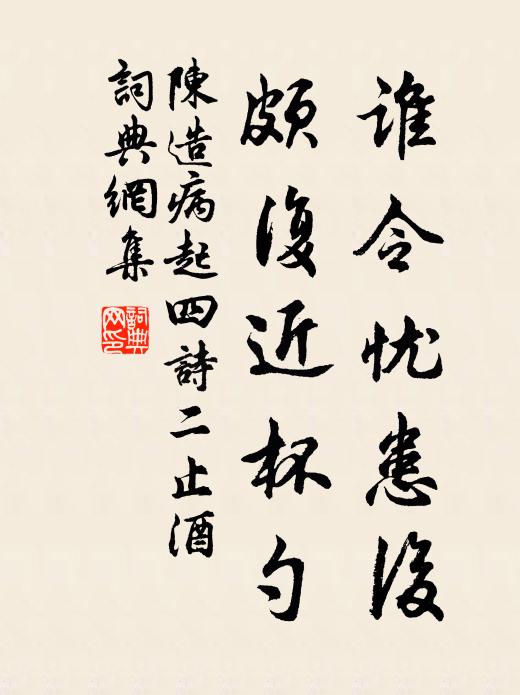 谁令忧患後
頗復近杯勺
陳造病起四詩二止酒
詞典網集
詞典网印